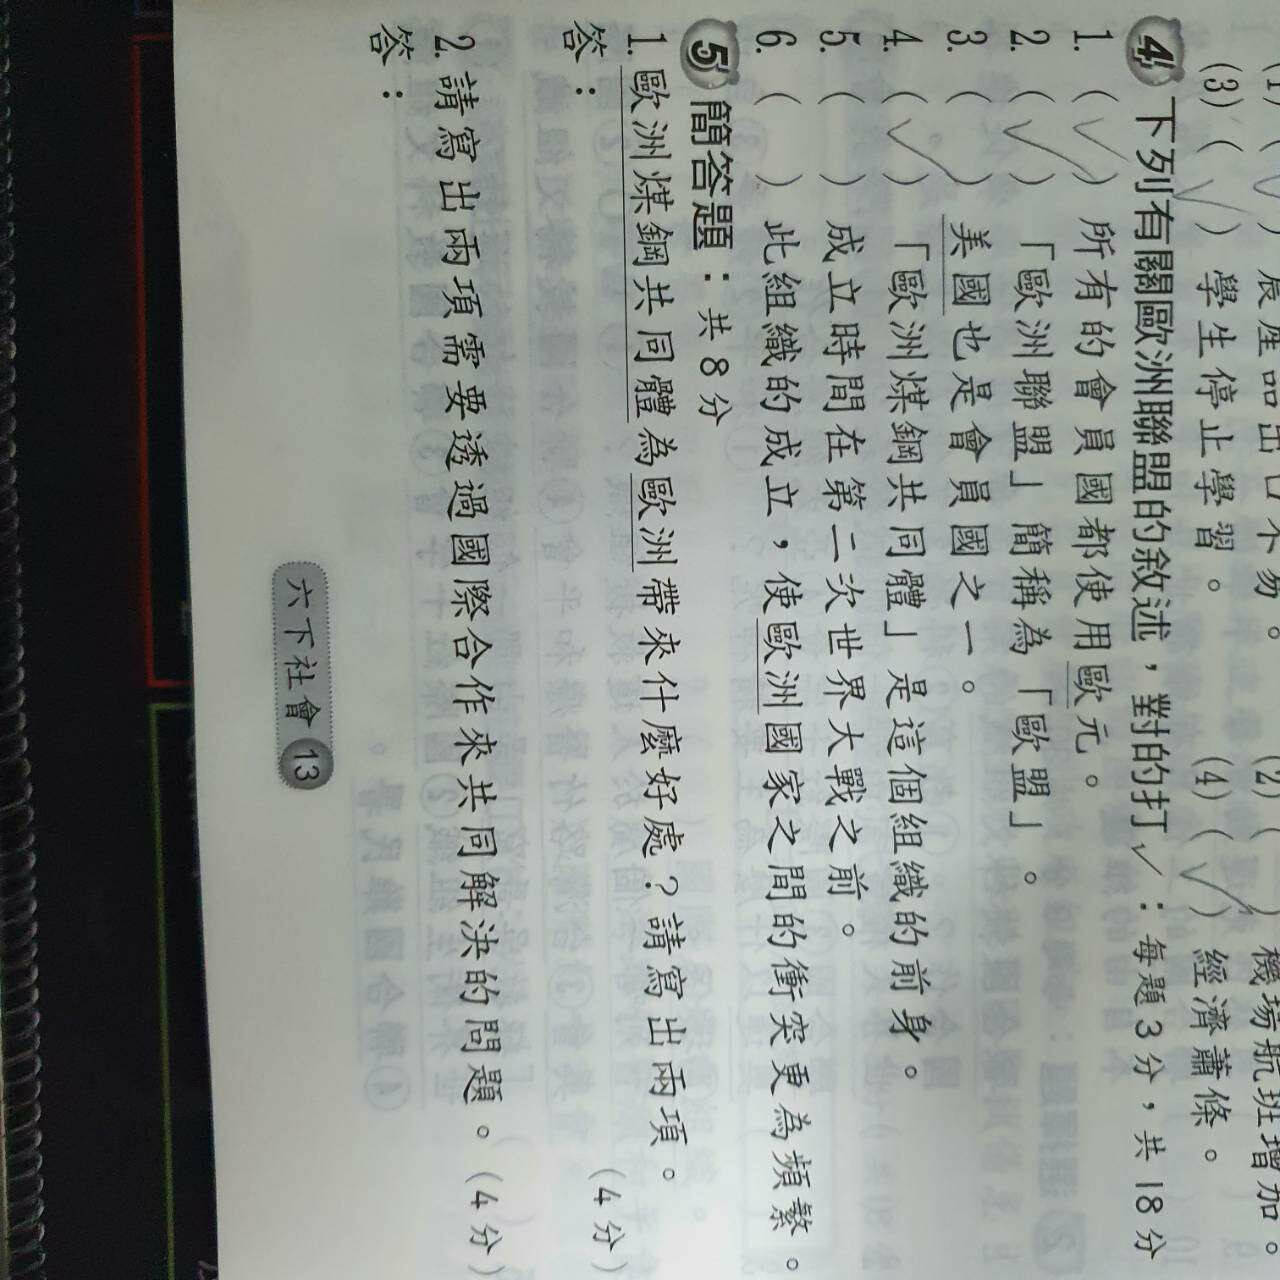 (3)(✓)學生停止學習。 (4)(✓)經濟蕭條。
4 下列有關歐洲聯盟的敘述,對的打✓:每題3分,共18分
1.(✓)所有的會員國都使用歐元。
2.(✓)「歐洲聯盟」簡稱為「歐盟」。
3.( )美國也是會員國之一。
4.(✓)「歐洲煤鋼共同體」是這個組織的前身。
5.( )成立時間在第二次世界大戰之前。
6.( )此組織的成立,使歐洲國家之間的衝突更為頻繁。
5 簡答題:共8分
1. 歐洲煤鋼共同體為歐洲帶來什麼好處?請寫出兩項。(4分)
答:
2. 請寫出兩項需要透過國際合作來共同解決的問題。(4分)
答:
六下社會 13